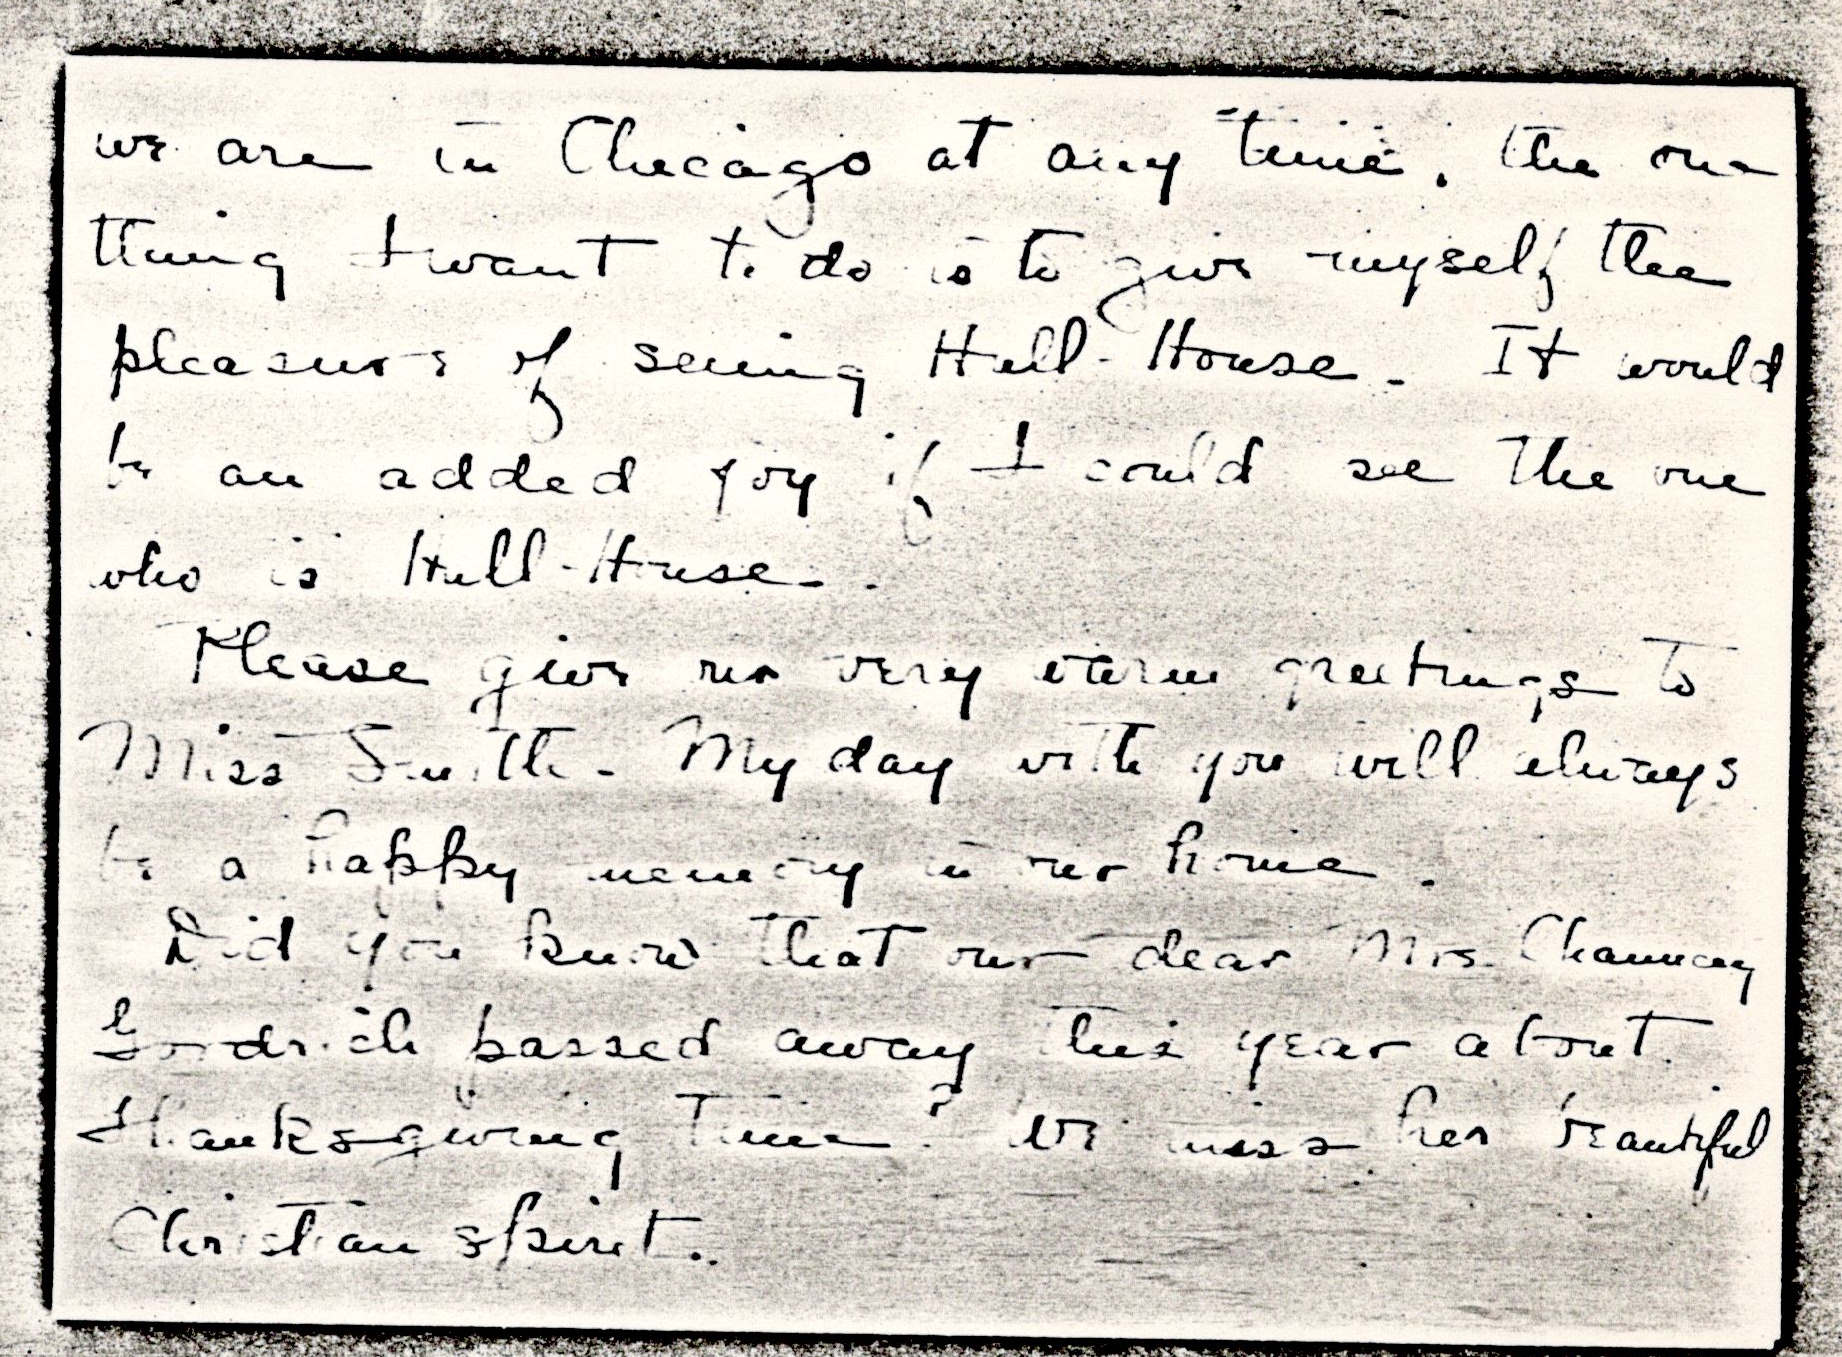 we are in Chicago at any time, the one
thing I want to do is to give myself the
pleasure of seeing Hull-House. It would
be an added joy if I could see the one
who is Hull-House.
Please give our very warm greetings to
Miss Smith. My day with you will always
be a happy memory in our home.
Did you know that our dear Mrs. Chauncey
Goodrich passed away this year about
Thanksgiving time? We miss her beautiful
Christian spirit.